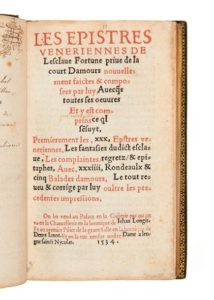 LES EPISTRES
VENERIENNES DE
Lesclaue Fortune priue de la
court Damours nouuelle-
ment faictes & compo-
sees par luy Auecq̄
toutes ses oeuures
Et y est com-
prins ce qui
sésuyt,
Premierement les .xxx. Epistres ve-
neriennes. Les fantasies dudict escla-
ue. Les complaintes, regretz/ & epi-
taphes, Auec .xxxiiij. Rondeaulx &
cinq Balades damours. Le tout re-
ueu & corrige par luy oultre les pre-
cedentes impressions.
On les vend au Palais en la
en la Chancellerie en la boutique de Iehan Longis.
Et au premier Pillier de la grāt salle en la
Denys Ianot. Et en la rue neufue nostre Dame a len-
seigne sainct Nycolas.
1534.